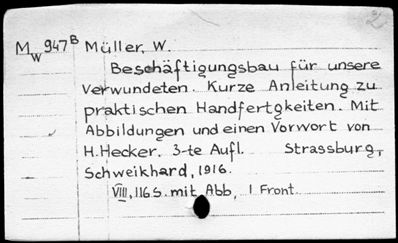 2
M W 947 B Müller, W.
Beschäftigungsbau für unsere
Verwundeten. Kurze Anleitung zu
praktischen Handfertgkeiten. Mit
Abbildungen und einen Vorwort von
H. Hecker. 3-te Aufl. Strassburg,
Schweikhard, 1916.
VIII, 116 S. mit Abb, 1 Front.